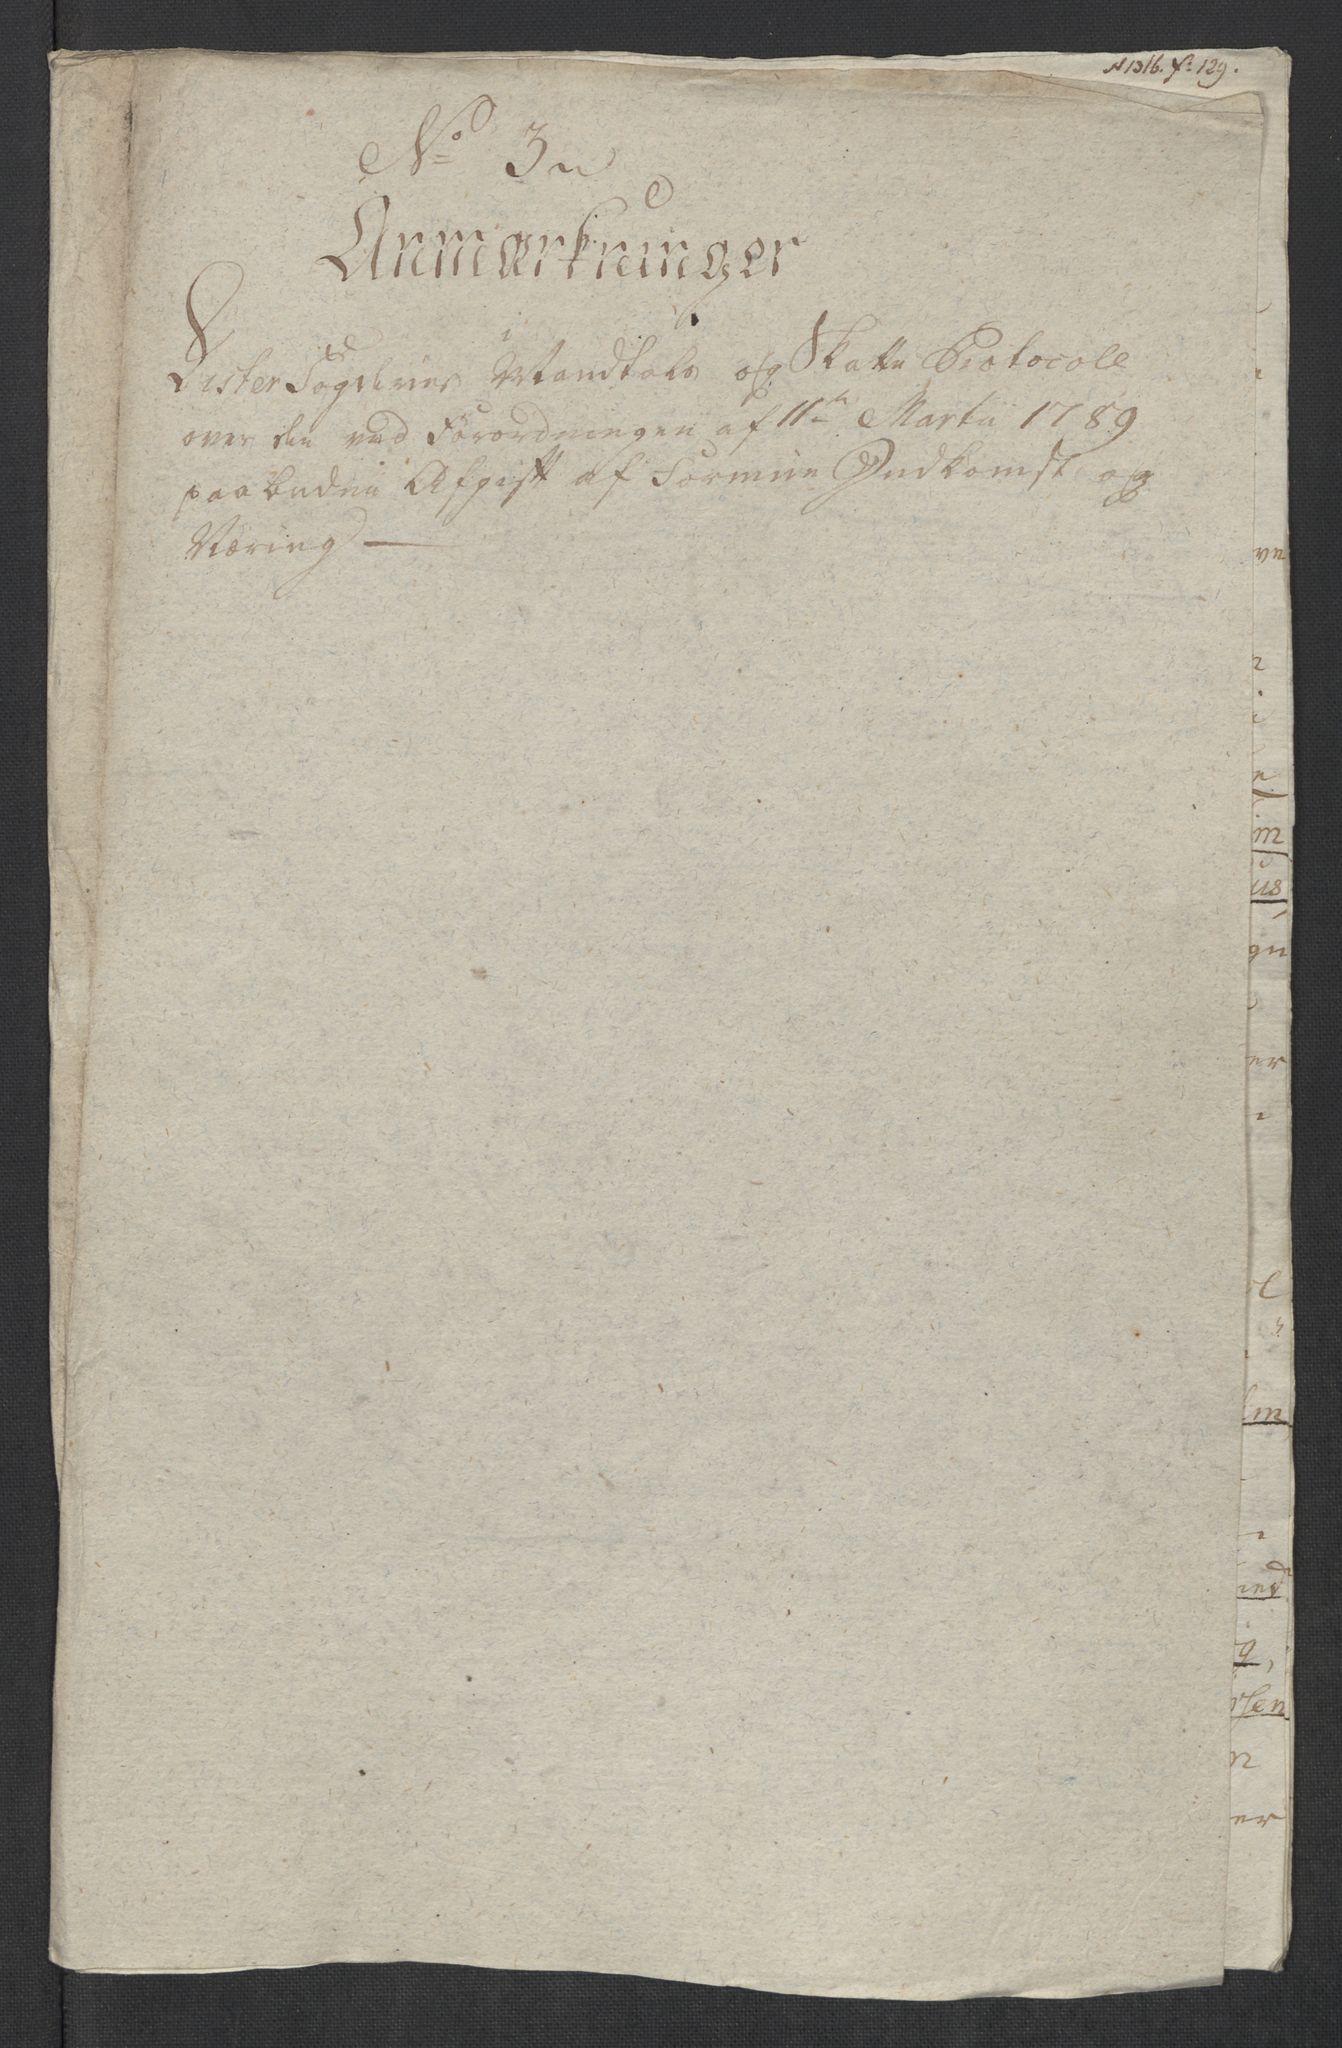 N 1316. f: 129.
No 3
Anmærkninger
i
Lister Fogderies Mandtals og Skatte Protocoll
over den ved Forordningen af 11te Martii 1789
paabudne Afgift af Formue Indkomst og
Næring —
ve
m
us
gn
er
m
ned
g,
rsen
er